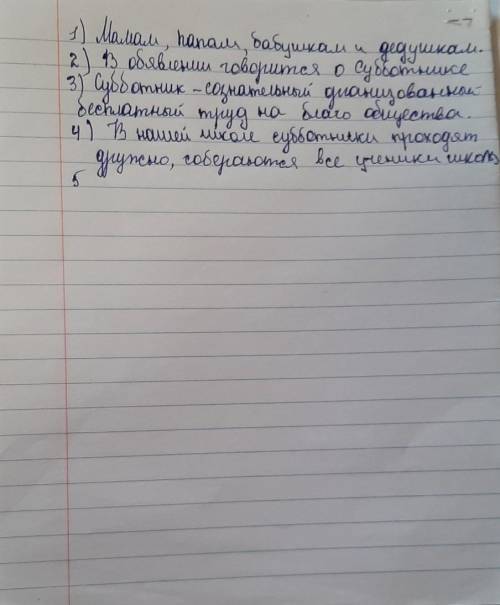 1) Мамам, папам, бабушкам и дедушкам.
2) В обявлении говорится о Субботнике
3) Субботник - сознательный
бесплатный труд на благо общества.
4) В нашей школе субботники проходят
дружно, собераются все ученики школы
5